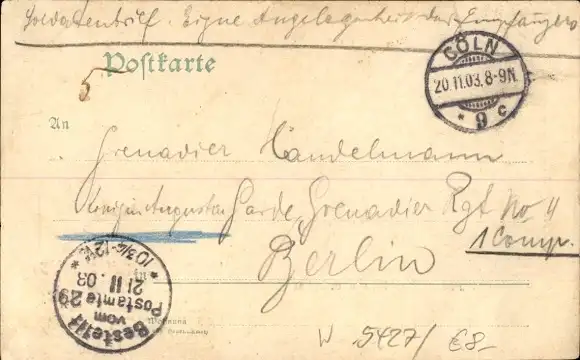 Soldatenbrief. Eigne Angelegenheit des Empfängers
Postkarte
5
CÖLN
20.11.03.8-9N.
* 9 c
An
Grenadier Handelmann
Königin Augusta Garde Grenadier Rgt No 4
1 Comp.
Berlin
in
Bestellt
vom
Postamte 29
21 11.03
* 10 3/4-12 1/4 V. *
Wohnung
W 5427/ €8-